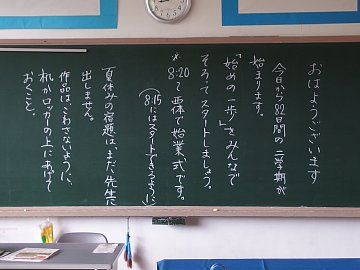 おはようございます
今日から82日間の二学期が
始まります。
「始めの一歩」をみんなで
そろってスタートしましょう。
※8:20〜体で始業式です。
(8:15にはスタートできるように)
夏休みの宿題は、まだ先生に
出しません。
作品は、こわさないように、
机かロッカーの上にあげて
おくこと。